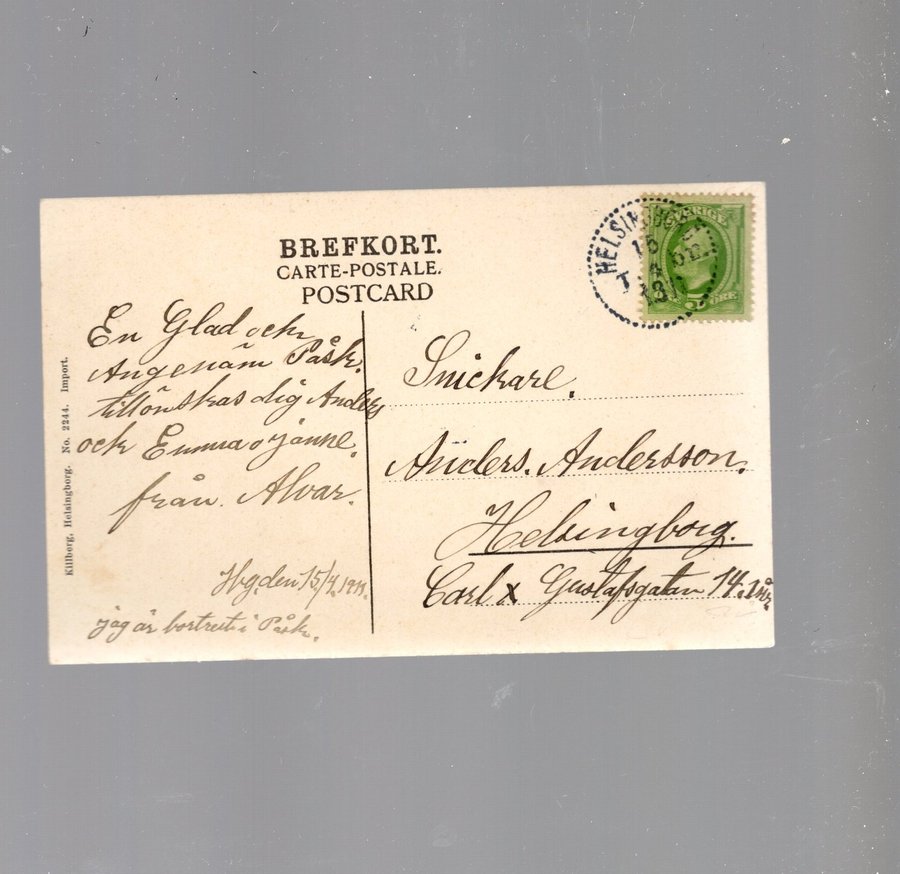 BREFKORT.
CARTE-POSTALE.
POSTCARD
En Glad och
Angenäm Påsk.
tillönskas dig Anders
och Emma o Janne.
från. Alvar.
Hbg. den 15/4.
jag är bortrest i Påsk.
Killberg, Helsingborg. No. 2244. Import.
HELSINGBORG
15 4
SVERIGE
5 ÖRE
Snickare.
Anders. Andersson.
Helsingborg.
Carl X Gustafsgatan 14.